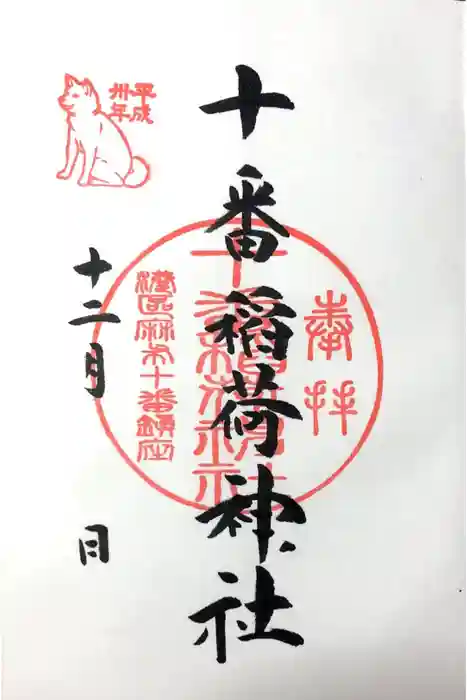 奉拝
十番稲荷神社
十番稲荷神社
港區麻布十番鎮座
平成
卅年
十二月
日